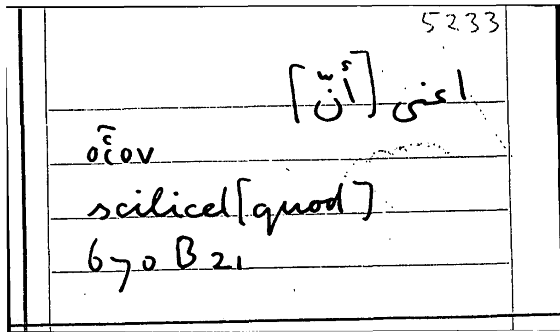 5233
اعنى [أنّ]
οἷον
scilicet [quod]
670 B 21